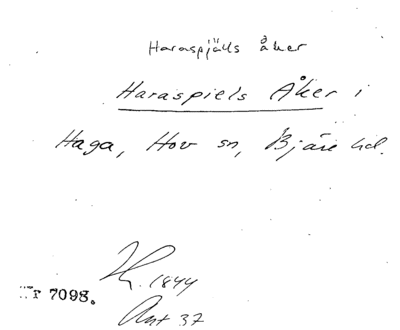 Haraspjälls åker
Haraspiels Åker i
Haga, Hov sn, Bjäre hd.
1844
7098.
Ant 37